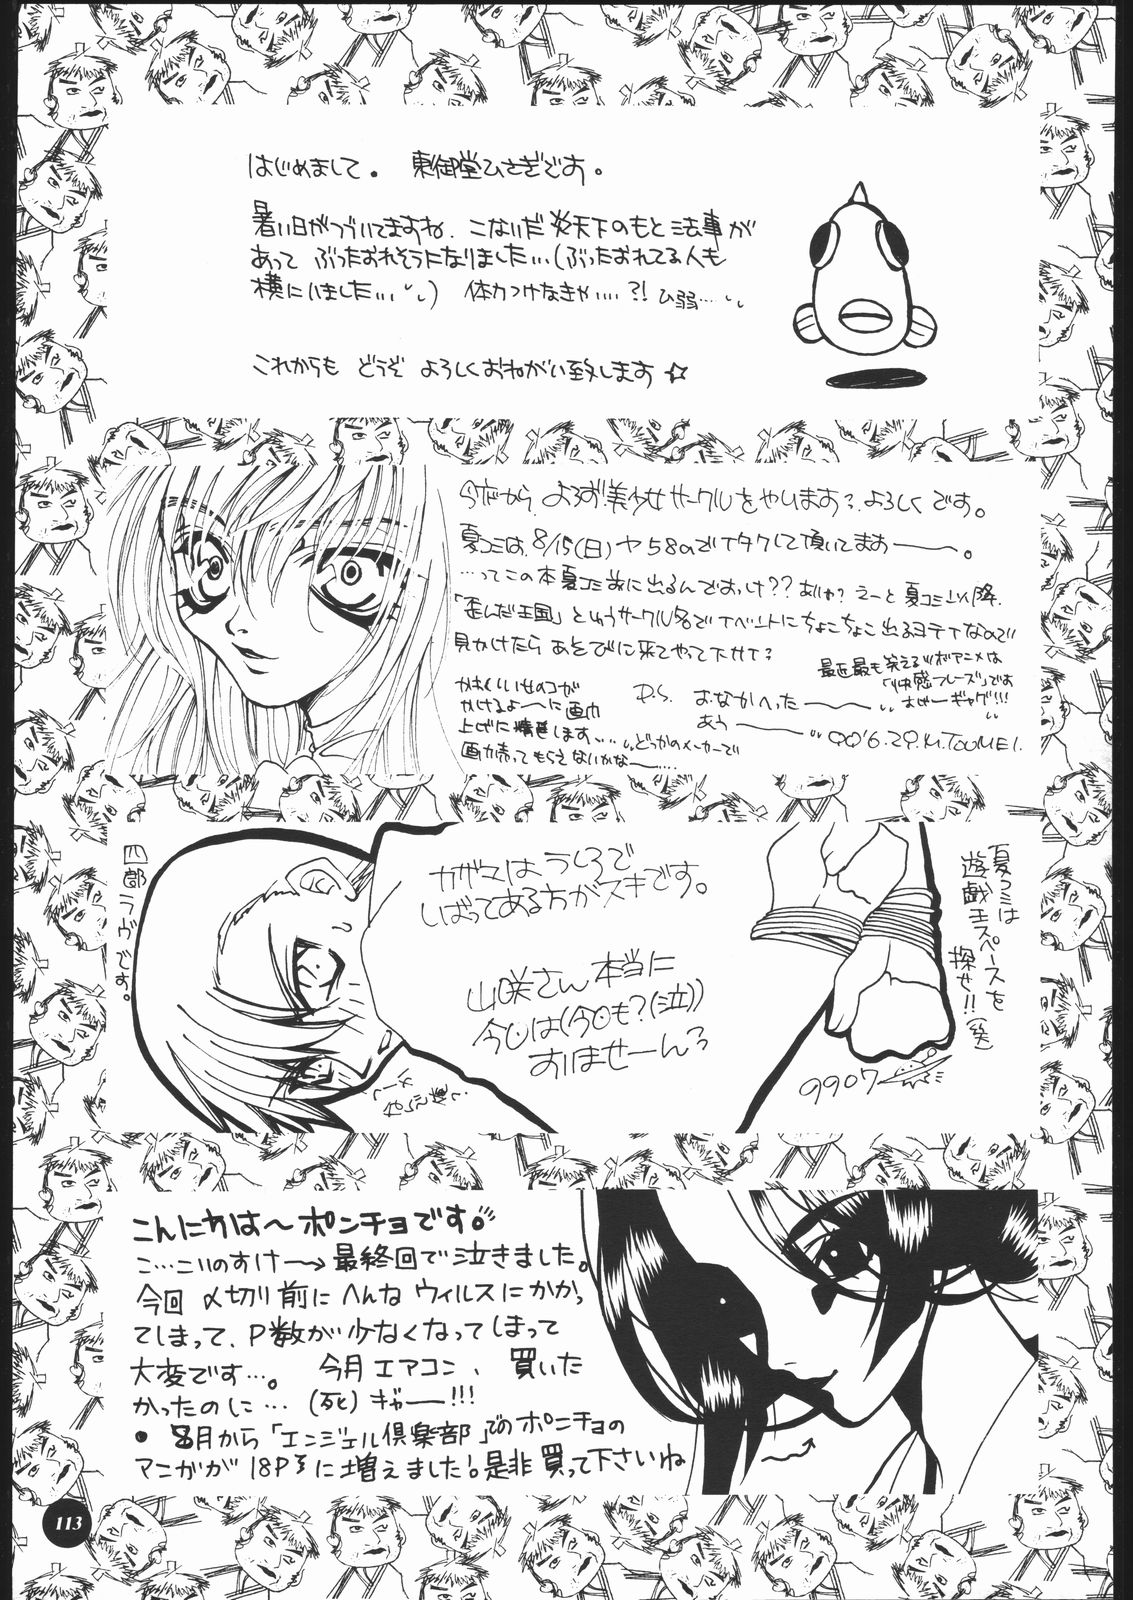 はじめまして。 東御堂ひさぎです。
暑い日がつづいてますね、こないだ炎天下のもと法事が
あって ぶったおれそうになりました…(ぶったおれてる人も
横にいました…) 体力つけなきゃ…?! ひ弱…
これからも どうぞ よろしくおねがい致します☆
今度から、よろず美少女サークルをやります?よろしくです。
夏コミは、8/15(日)ヤ58aでイタクして頂いてまおー。
…ってこの本夏コミ前に出るんですっけ??ありゃ?えーと夏コミ以降、
「歪んだ王国」というサークル名でイベントにちょこちょこ出るヨテイなので
見かけたらあそびに来てやって下サイ?
最近最も笑えるバカアニメは
「快感フレーズ」です
すげーギャグ!!!
かわいい女のコが
かけるよーに画力
上げに精進します…どっかのメーカーで
画力売ってもらえないかなー…
P.S. おなかへったー
あうー
99'6.29.M.TOUMEI.
四郎ラヴです。
カガミはうしろで
しばってある方がスキです。
山咲さん本当に
今回は(今回も?(泣))
すいませーん?
夏コミは
遊戯王スペースを
探せ!!(笑)
9907
こんにちは〜ポンチョです。
こ…こいのすけ〜→最終回で泣きました。
今回〆切り前にへんなウィルスにかかっ
てしまって、P数が少なくなってしまって
大変です…。 今月エアコン、買いた
かったのに…(死)ギャー!!!
● 8月から「エンジェル倶楽部」でのポンチョの
マンガが18P〜に増えました!是非買って下さいね
113